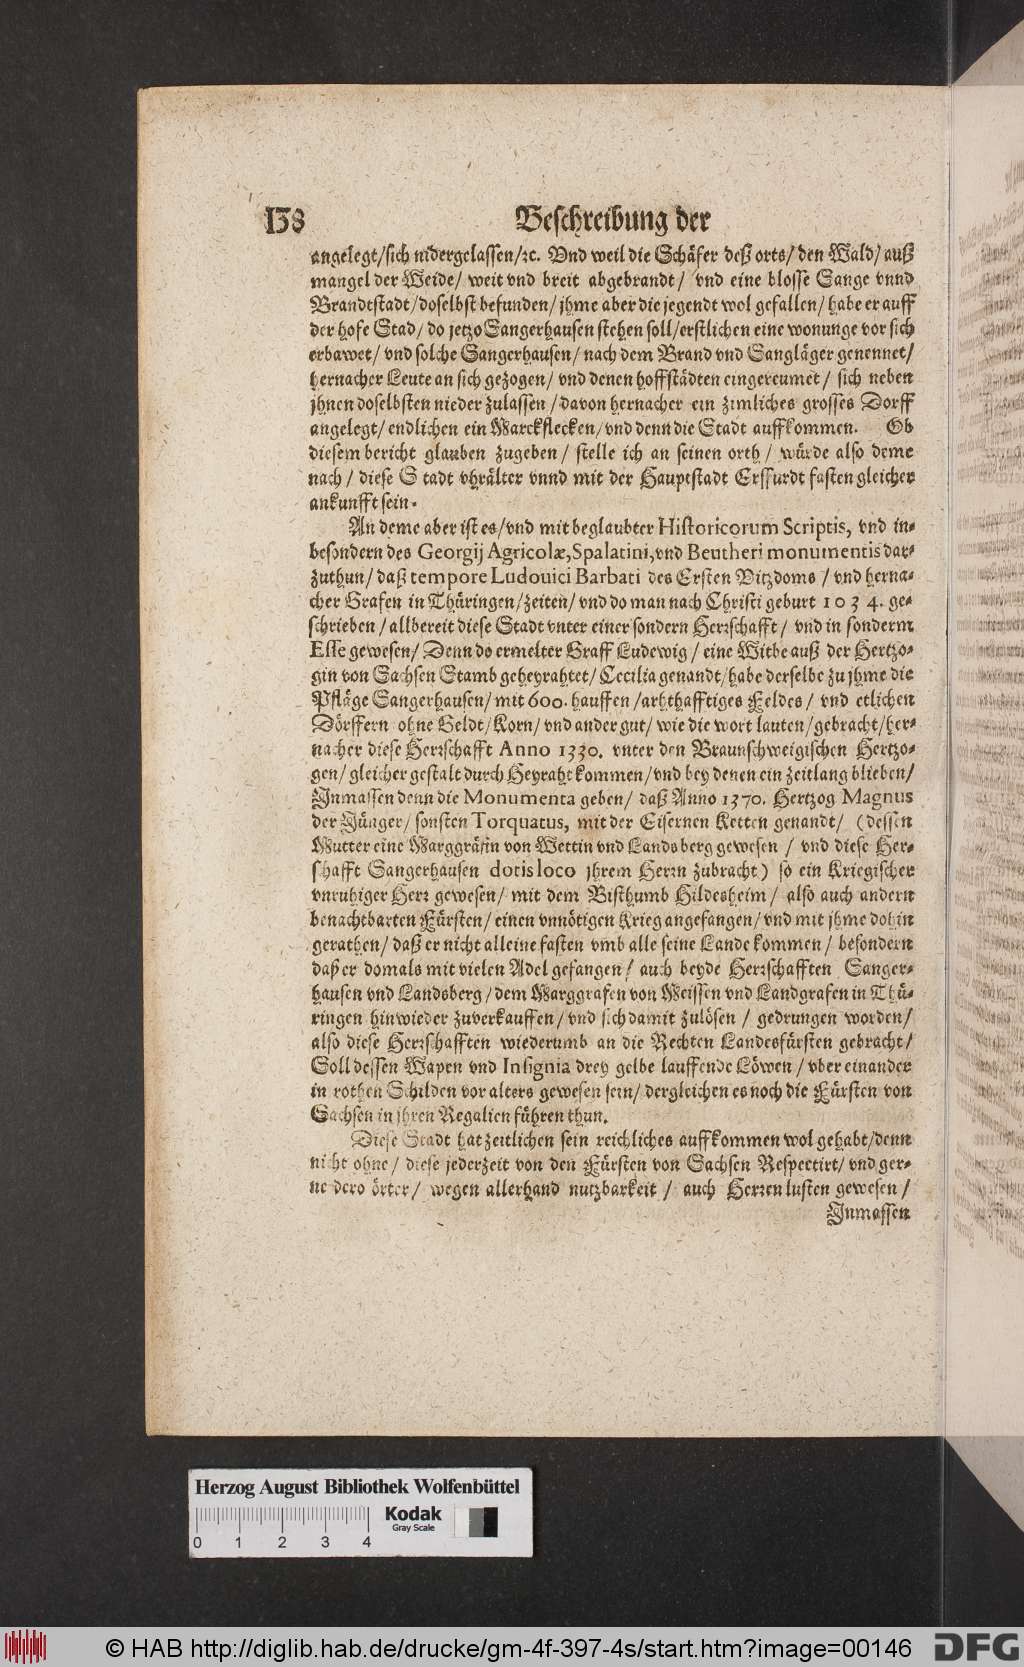 138 Beschreibung der
angelegt/sich nidergelassen/ꝛc. Vnd weil die Schäfer deß orts/ den Wald/ auß
mangel der Weide/ weit vnd breit abgebrandt/ vnd eine blosse Sange vnnd
Brandtstadt/doselbst befunden/ jhme aber die jegendt wol gefallen/ habe er auff
der hofe Stad/ do jetzo Sangerhausen stehen soll/erstlichen eine wonunge vor sich
erbawet/ vnd solche Sangerhausen/ nach dem Brand vnd Sangläger genennet/
hernacher Leute an sich gezogen/ vnd denen hoffstädten eingereumet/ sich neben
jhnen doselbsten nieder zulassen/davon hernacher ein zimliches grosses Dorff
angelegt/ endlichen ein Marckflecken/ vnd denn die Stadt auffkommen. Ob
diesem bericht glauben zugeben/ stelle ich an seinen orth/ würde also deme
nach/ diese Stadt vhrälter vnnd mit der Hauptstadt Erffurdt fasten gleicher
ankunfft sein.
An deme aber ist es/vnd mit beglaubter Historicorum Scriptis, vnd in-
besondern des Georgij Agricolæ, Spalatini, vnd Beutheri monumentis dar-
zuthun/ daß tempore Ludouici Barbati des Ersten Vitzdoms/ vnd herna-
cher Grafen in Thüringen/zeiten/ vnd do man nach Christi geburt 1034. ge-
schrieben/ allbereit diese Stadt vnter einer sondern Herrschafft/ vnd in sonderm
Esse gewesen/ Denn do ermelter Graff Ludewig/ eine Witbe auß der Hertzo-
gin von Sachsen Stamb geheyrahtet/ Cecilia genandt/habe derselbe zu jhme die
Pfläge Sangerhausen/ mit 600. hauffen/arhthafftiges Feldes/ vnd etlichen
Dörffern ohne Geldt/Korn/ vnd ander gut/ wie die wort lauten/gebracht/her-
nacher diese Herrschafft Anno 1330. vnter den Braunschweigischen Hertzo-
gen/ gleicher gestalt durch Heyraht kommen/vnd bey denen ein zeitlang blieben/
Jnmassen denn die Monumenta geben/ daß Anno 1370. Hertzog Magnus
der Jünger/ sonsten Torquatus, mit der Eisernen Ketten genandt/ (dessen
Mutter eine Marggräfin von Wettin vnd Landsberg gewesen/ vnd diese Her-
schafft Sangerhausen dotis loco jhrem Herrn zubracht) so ein Kriegischer
vnruhiger Herr gewesen/ mit dem Bisthumb Hildesheim/ also auch andern
benachtbarten Fürsten/ einen vnnötigen Krieg angefangen/ vnd mit jhme dohin
gerathen/ daß er nicht alleine fasten vmb alle seine Lande kommen/ besondern
daß er domals mit vielen Adel gefangen/ auch beyde Herrschafften Sanger-
hausen vnd Landsberg/ dem Marggrafen von Meissen vnd Landgrafen in Thü-
ringen hinwieder zuverkauffen/ vnd sich damit zulösen/ gedrungen worden/
also diese Herrschafften wiederumb an die Rechten Landesfürsten gebracht/
Soll dessen Wapen vnd Insignia drey gelbe lauffende Löwen/ vber einander
in rothen Schilden vor alters gewesen sein/ dergleichen es noch die Fürsten von
Sachsen in jhren Regalien führen thun.
Diese Stadt hat zeitlichen sein reichliches auffkommen wol gehabt/denn
nicht ohne/ diese jederzeit von den Fürsten von Sachsen Respectirt/ vnd ger-
ne dero örter/ wegen allerhand nutzbarkeit/ auch Herren lusten gewesen/
Jnmassen
Herzog August Bibliothek Wolfenbüttel
Kodak
Gray Scale
0 1 2 3 4
© HAB http://diglib.hab.de/drucke/gm-4f-397-4s/start.htm?image=00146 DFG